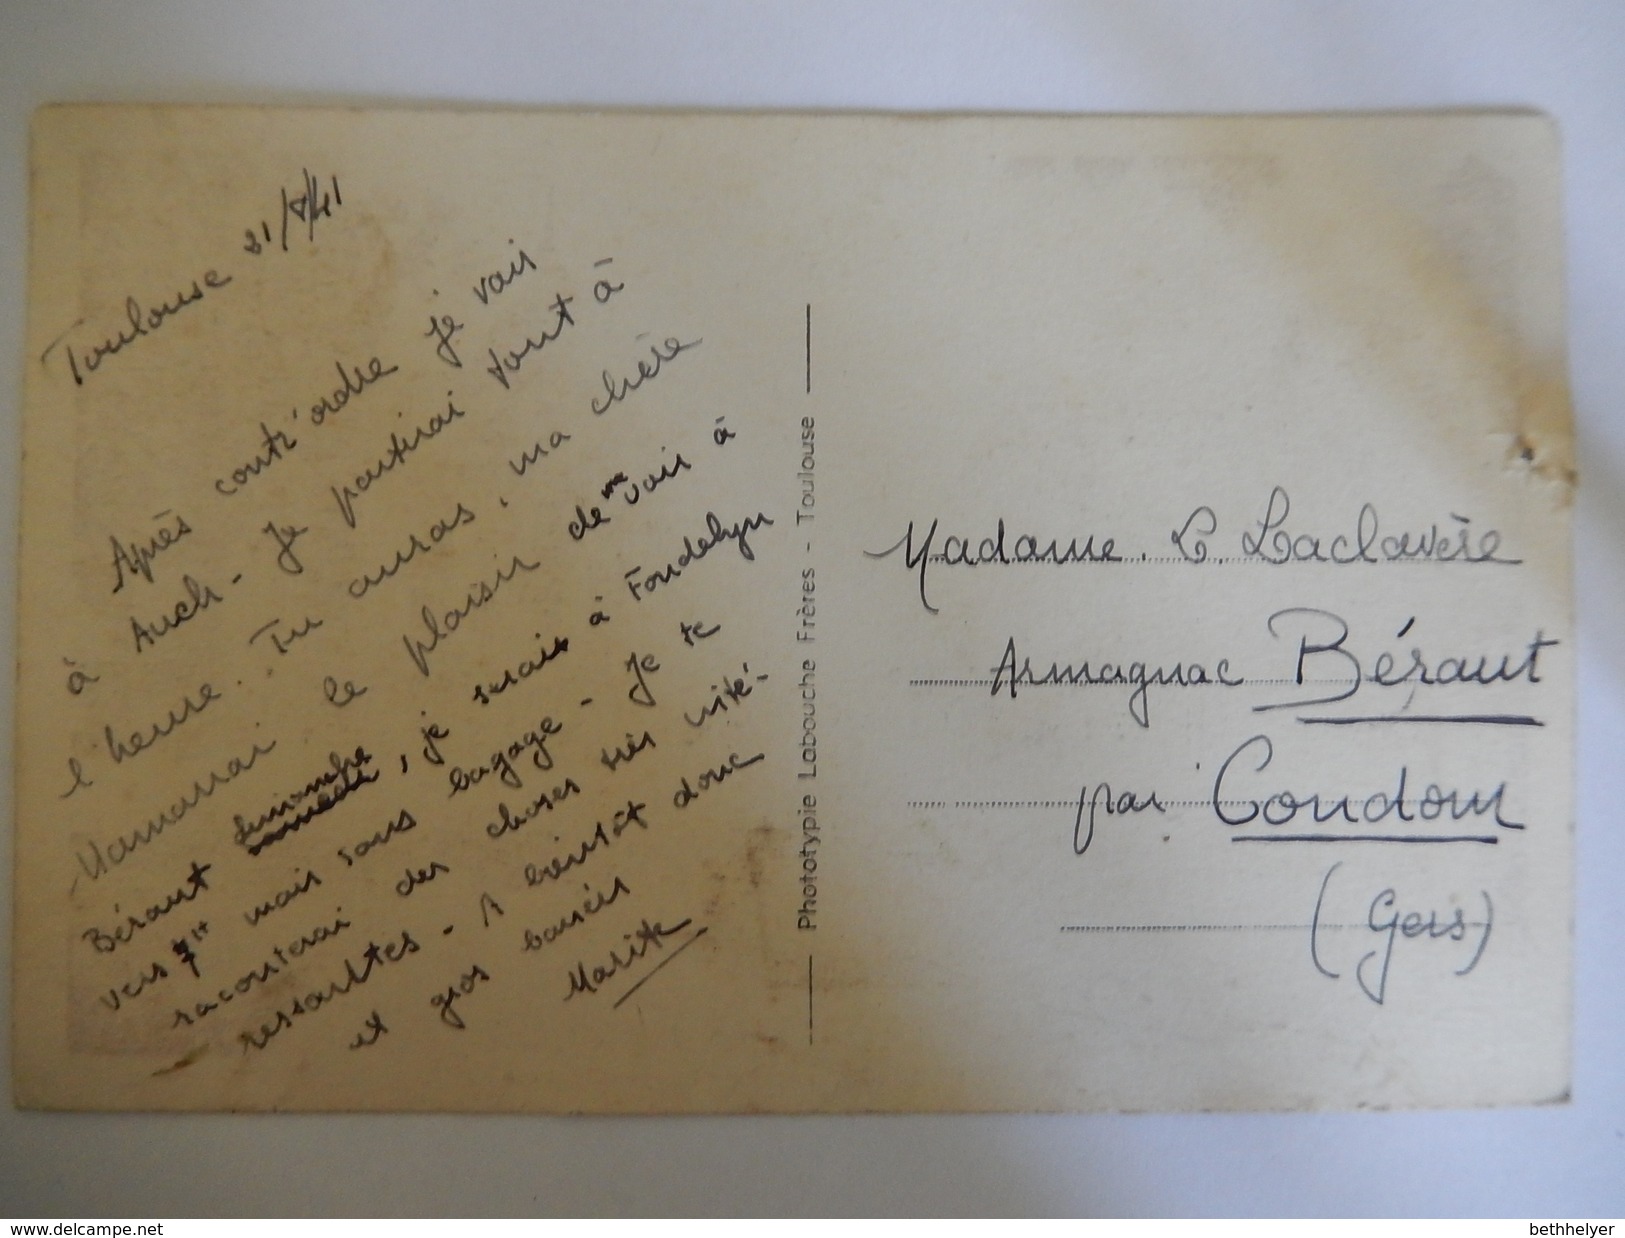 Toulouse 21/8/41
Après contr'ordre je vais
à Auch - Je partirai tout à
l'heure. Tu auras, ma chère
Mamanai le plaisir de me voir à
Béraut dimanche, je serais à Fondelyn
vers 7H mais sans bagage - Je te
raconterai des choses très vite -
ressantes - A bientôt donc
et gros baisers
Marite
Phototypie Labouche Frères - Toulouse
Madame L. Laclavère
Armagnac Béraut
par Condom
(Gers)
www.delcampe.net
bethhelyer